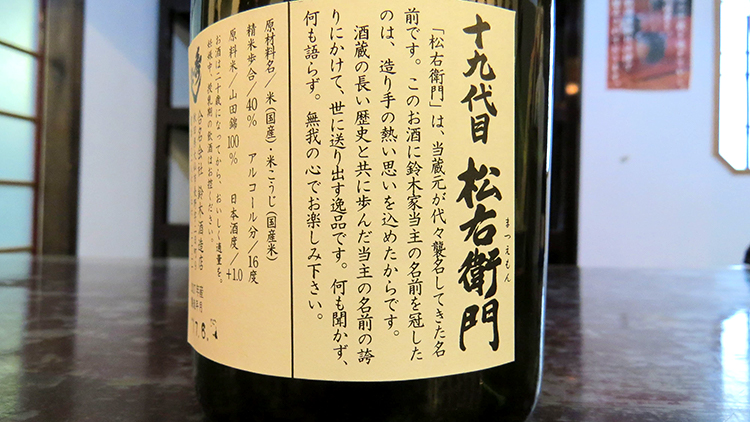 十九代目 松右衛門
まつえもん
「松右衛門」は、当蔵元が代々襲名してきた名
前です。このお酒に鈴木家当主の名前を冠した
のは、造り手の熱い思いを込めたからです。
酒蔵の長い歴史と共に歩んだ当主の名前の誇
りにかけて、世に送り出す逸品です。何も聞かず、
何も語らず。無我の心でお楽しみ下さい。
原材料名／米(国産)・米こうじ(国産米)
精米歩合／40% アルコール分／16度
原料米／山田錦100% 日本酒度／+1.0
お酒は二十歳になってから。おいしく適量を。
妊娠中、授乳期の飲酒はお控えください。
合名会社 鈴木酒造店